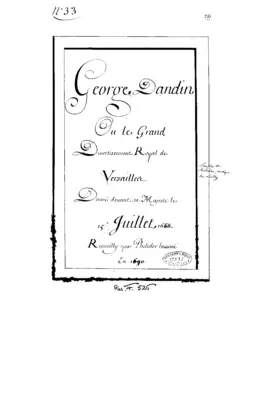 N° 33
George Dandin
Ou le Grand
Divertissement Royal de
Versailles
Donné devant sa Majesté le
15e Juillet 1668.
Recueilly par Philidor laisné
En 1690
Res F. 526